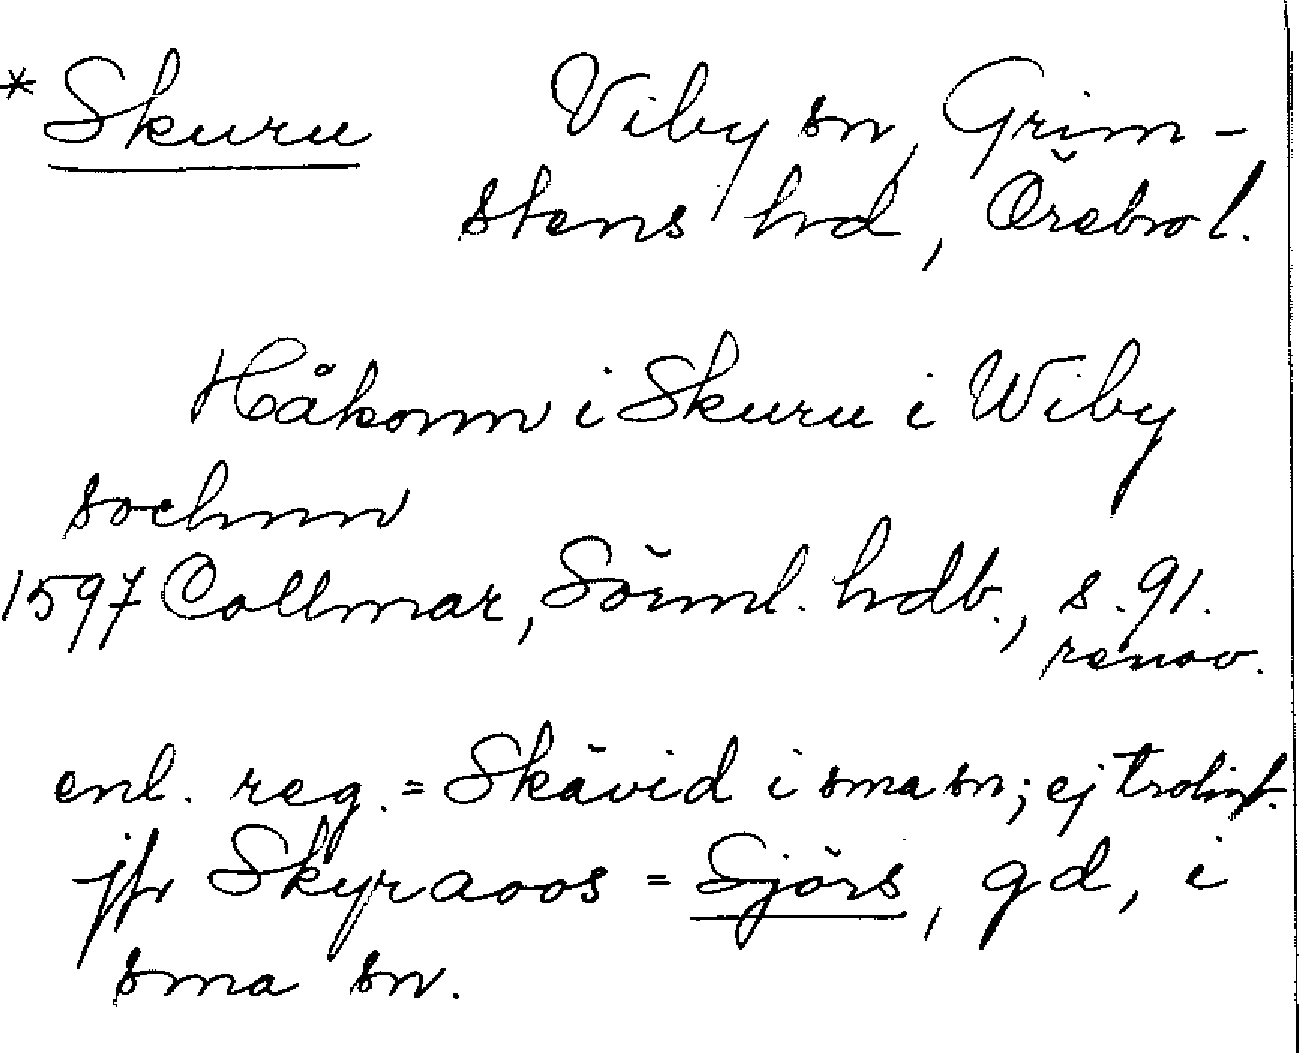 * Skuru Viby sn, Grim-
stens hd, Örebro l.
Håkonn i Skuru i Wiby
sochnn
1597 Collmar, Sörml. hdb., s. 91.
renov.
enl. reg. = Skävid i sma sn; ej troligt.
jfr Skyraoos = Sjörs, gd, i
sma sn.